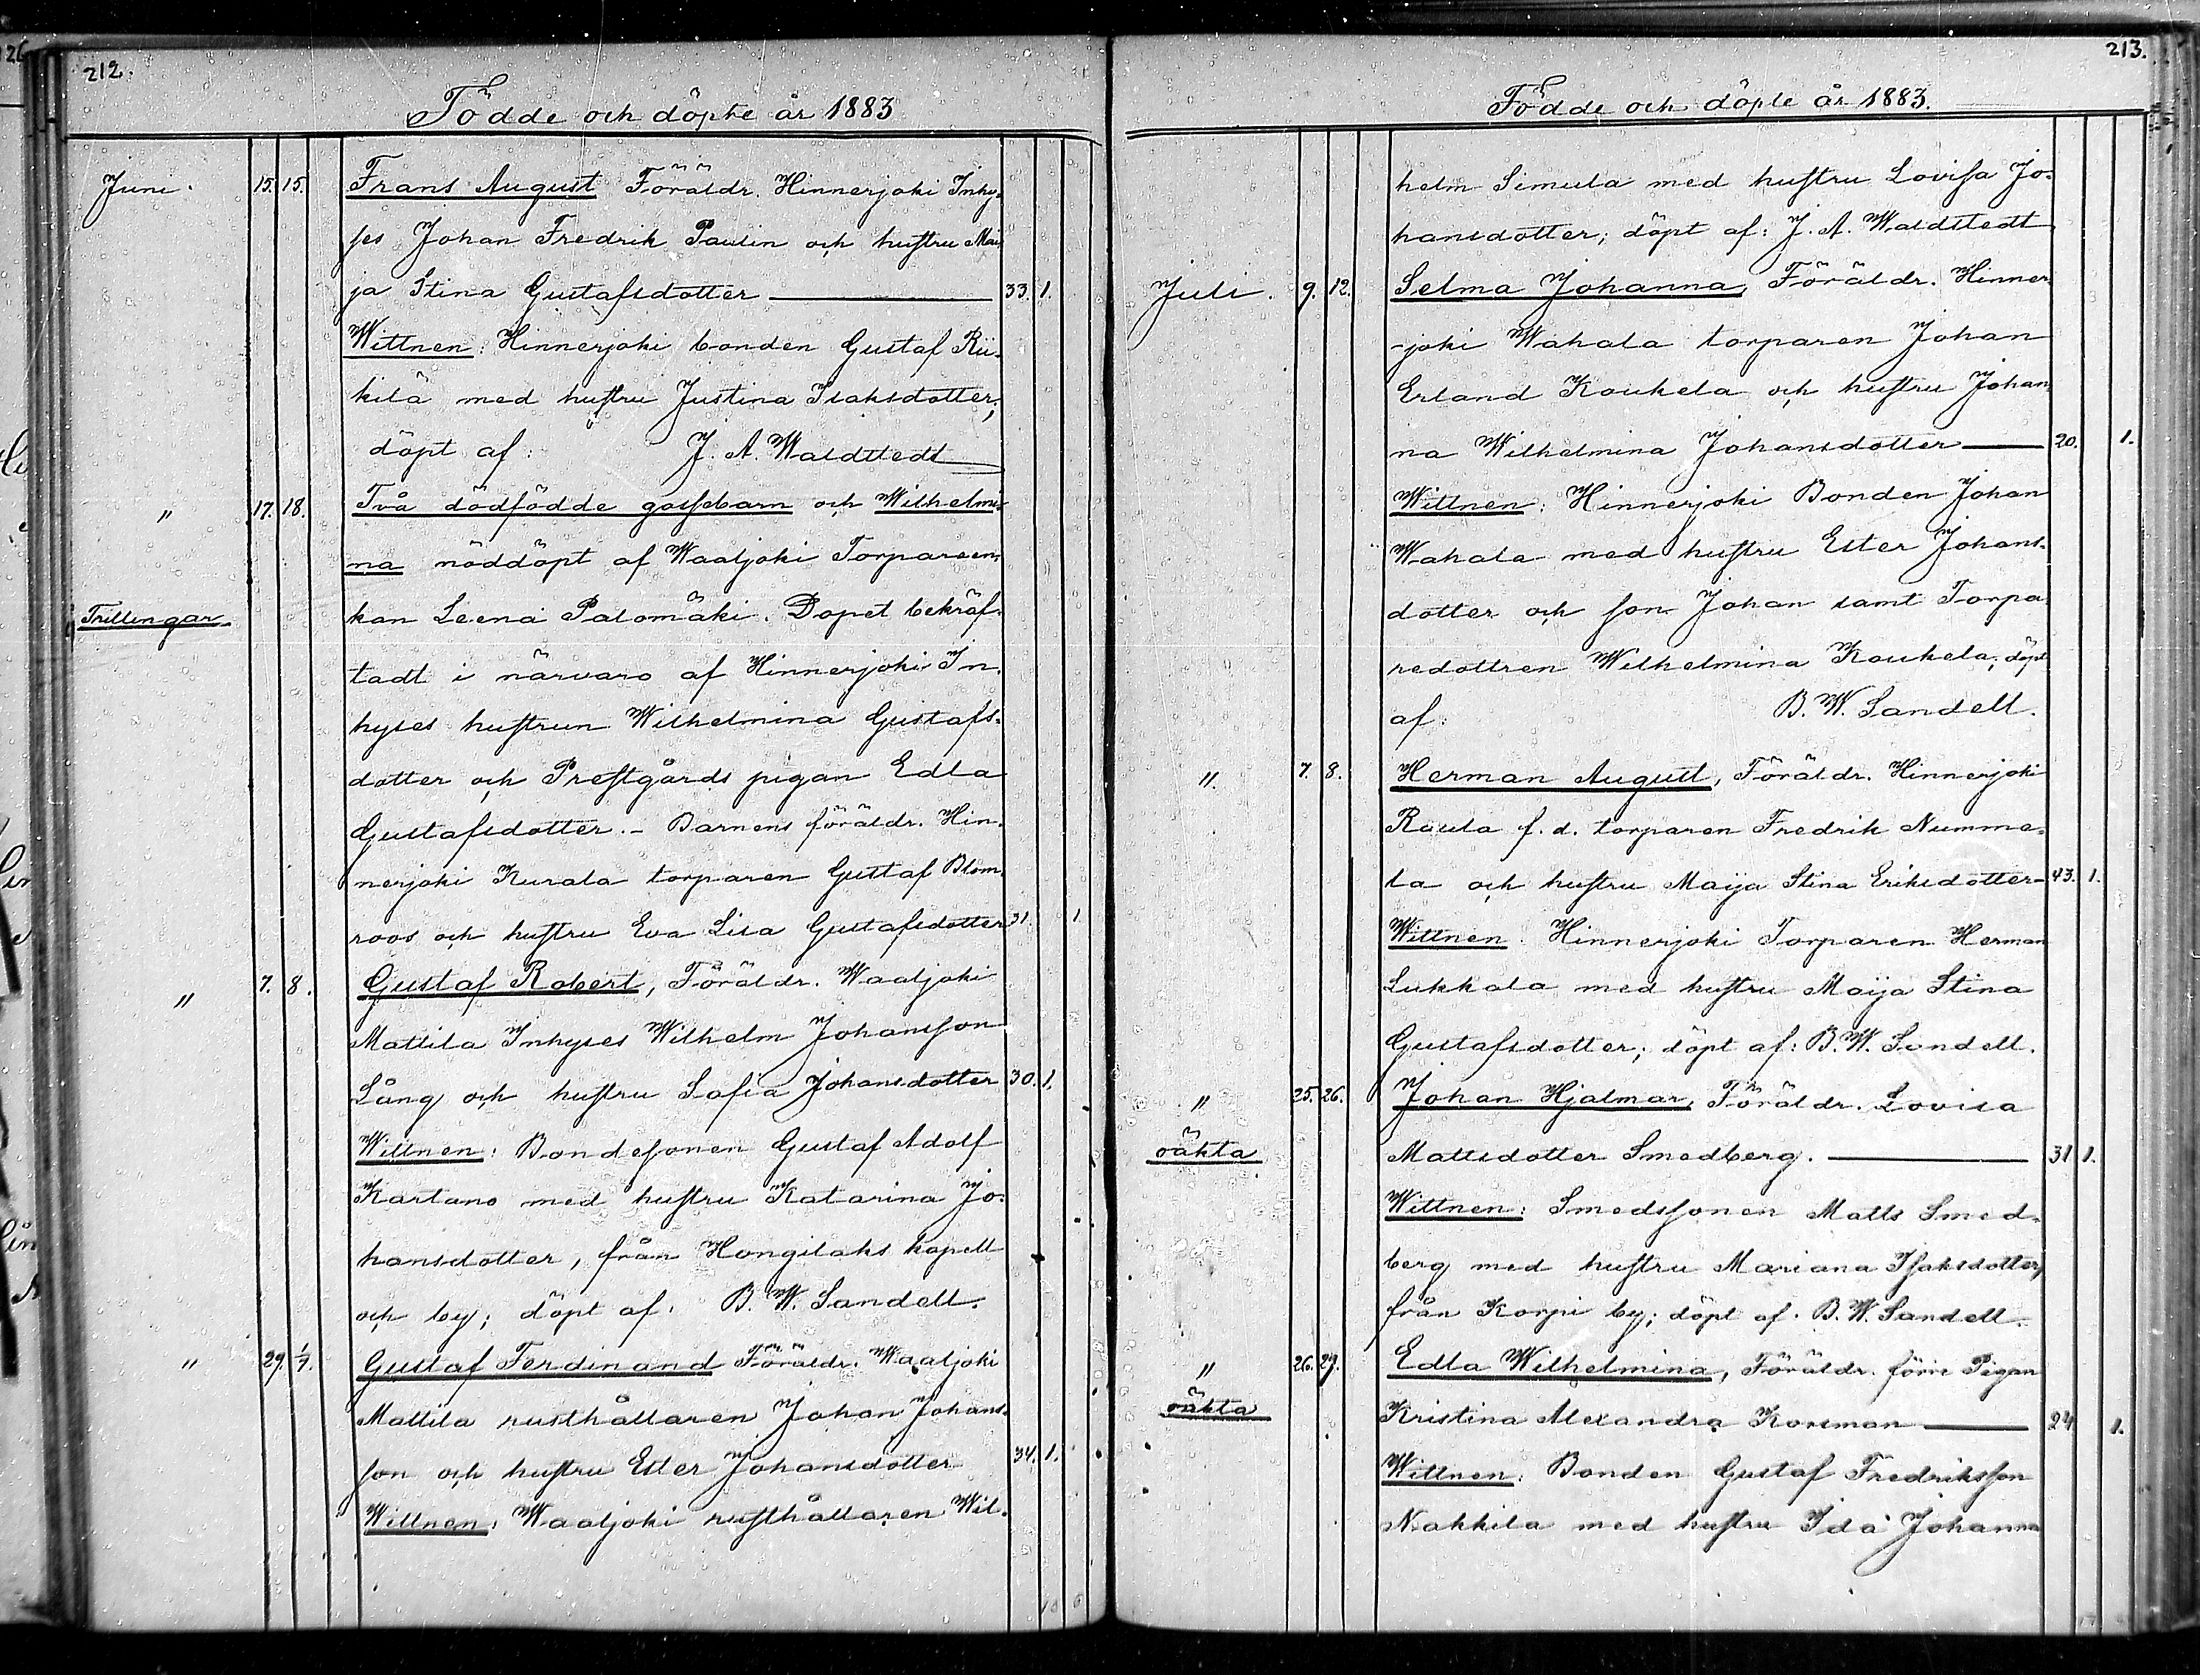 212.
Födde och döpte år 1883
Juni. 15. 15. Frans August Föräldr. Hinnerjoki Inhy-
ses Johan Fredrik Paulin och hustru Mai
ja Stina Gustafsdotter 33. 1.
Wittnen: Hinnerjoki bonden Gustaf Rii-
kilä med hustru Justina Isaksdotter;
döpt af: J. A. Waldstedt
" 17. 18. Två dödfödde gossebarn och Wilhelmi-
na nöddöpt af Waaljoki Torpareen-
Trillingar kan Leena Palomäki. Dopet bekräf-
tadt i närvaro af Hinnerjoki In-
hyses hustrun Wilhelmina Gustafs-
dotter och Prestgårds pigan Edla
Gustafsdotter. – Barnens föräldr. Hin-
nerjoki Kurala torparen Gustaf Blom-
roos och hustru Eva Lisa Gustafsdotter 31. 1
" 7. 8. Gustaf Robert, Föräldr. Waaljoki
Mattila Inhyses Wilhelm Johansson
Lång och hustru Sofia Johansdotter 30. 1.
Wittnen: Bondesonen Gustaf Adolf
Kartano med hustru Katarina Jo-
hansdotter, från Hongilaks kapell
och by; döpt af: B. W. Sandell.
" 29. 1/7. Gustaf Ferdinand Föräldr. Waaljoki
Mattila rusthållaren Johan Johans-
son och hustru Ester Johansdotter 34. 1.
Wittnen: Waaljoki rusthållaren Wil-
213.
Födde och döpte år 1883.
helm Simula med hustru Lovisa Jo-
hansdotter; döpt af: J. A. Waldstedt
Juli. 9. 12. Selma Johanna, Föräldr. Hinner
-joki Wahala torparen Johan
Erland Koukela och hustru Johan
na Wilhelmina Johansdotter 20. 1.
Wittnen: Hinnerjoki Bonden Johan
Wahala med hustru Ester Johans-
dotter och son Johan samt Torpa
redottren Wilhelmina Koukela; döpt
af: B. W. Sandell.
" 7. 8. Herman August, Föräldr. Hinnerjoki
Raula f. d. torparen Fredrik Numme-
la och hustru Maija Stina Eriksdotter 43. 1.
Wittnen: Hinnerjoki Torparen Herman
Lukkala med hustru Maija Stina
Gustafsdotter; döpt af: B. W. Sandell.
" 25. 26. Johan Hjalmar, Föräldr. Lovisa
oäkta Mattsdotter Smedberg. 31 1.
Wittnen: Smedssonen Matts Smed-
berg med hustru Mariana Isaksdotter,
från Korpi by; döpt af. B. W. Sandell.
" 26. 29. Edla Wilhelmina, Föräldr. förre Pigan
oäkta Kristina Alexandra Korsman 24 1.
Wittnen: Bonden Gustaf Fredriksson
Nakkila med hustru Ida Johanna